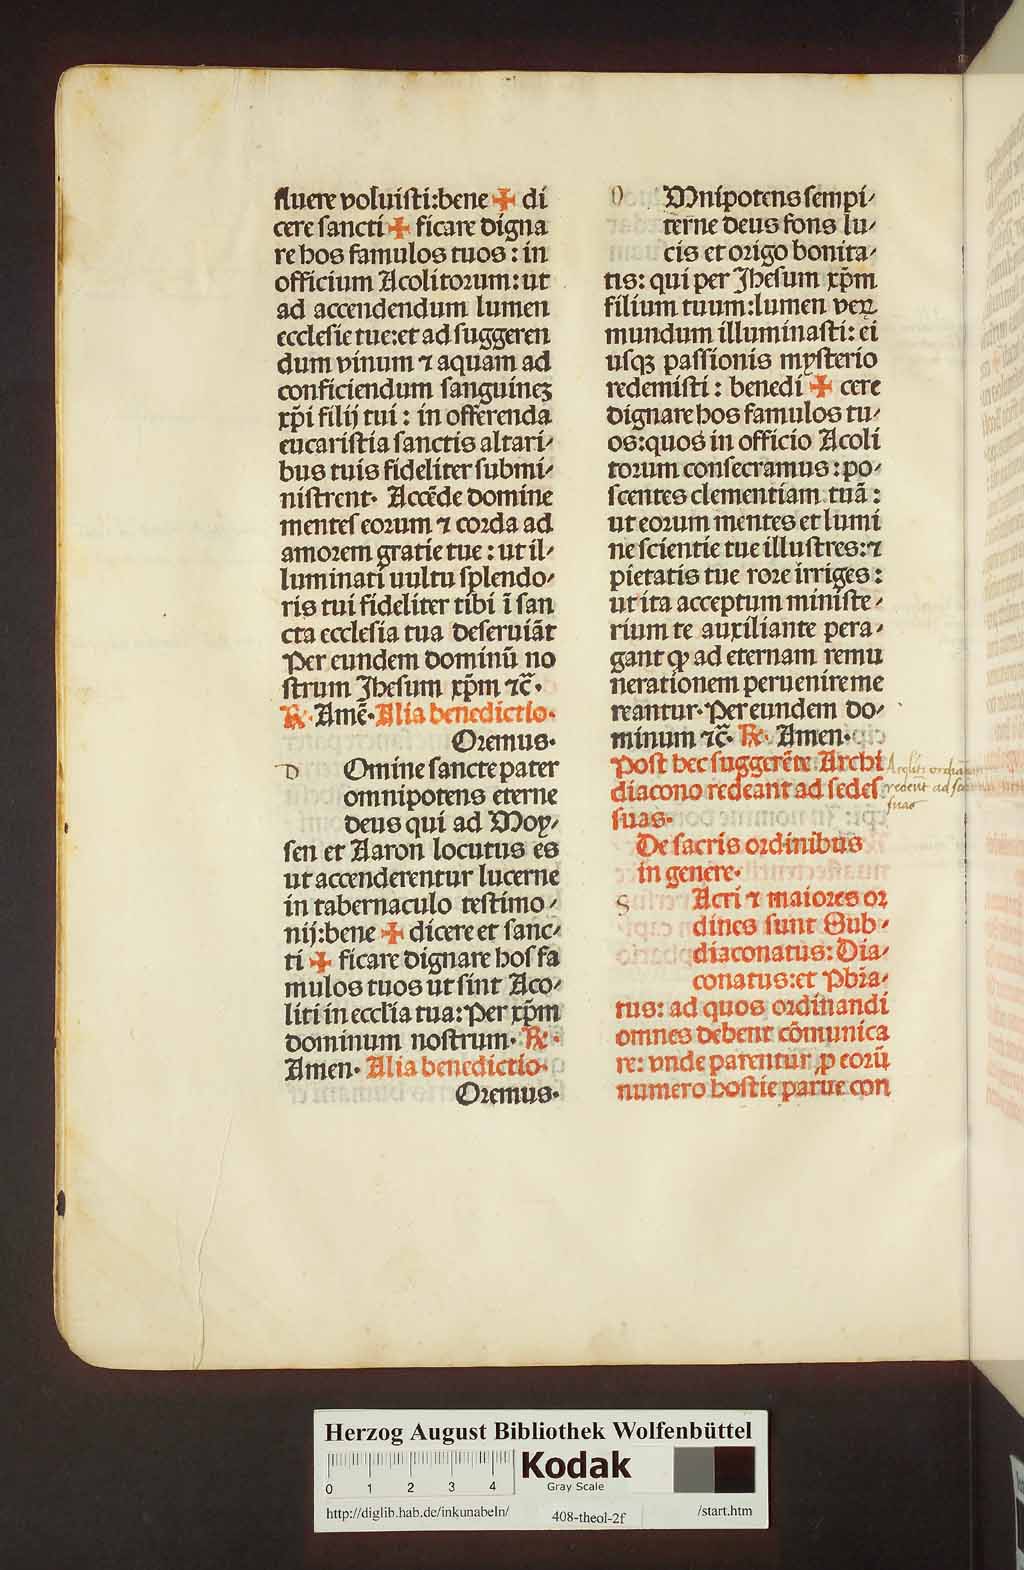 fluere voluisti:bene ✠ di
cere sancti ✠ ficare digna
re hos famulos tuos : in
officium Acolitorum: ut
ad accendendum lumen
ecclesie tue:et ad suggeren
dum vinum ⁊ aquam ad
conficiendum sanguineꝫ
xp̄i filij tui : in offerenda
eucaristia sanctis altari⸗
bus tuis fideliter submi⸗
nistrent· Accēde domine
mentes eorum ⁊ corda ad
amorem gratie tue : ut il⸗
luminati uultu splendo⸗
ris tui fideliter tibi ī san
cta ecclesia tua deseruiāt
Per eundem dominū no
strum Jhesum xp̄m ⁊c̄·
℟· Amē· Alia benedictio·
Oremus·
D Omine sancte pater
omnipotens eterne
deus qui ad Moy⸗
sen et Aaron locutus es
ut accenderentur lucerne
in tabernaculo testimo⸗
nij:bene ✠ dicere et sanc⸗
ti ✠ ficare dignare hos fa
mulos tuos ut sint Aco⸗
liti in eccl̄ia tua: Per xp̄m
dominum nostrum· ℟·
Amen· Alia benedictio·
Oremus·
O Mnipotens sempi⸗
terne deus fons lu⸗
cis et origo bonita⸗
tis: qui per Jhesum xp̄m
filium tuum:lumen veꝝ
mundum illuminasti: ei
usqꝫ passionis mysterio
redemisti : benedi ✠ cere
dignare hos famulos tu⸗
os:quos in officio Acoli
torum consecramus : po⸗
scentes clementiam tuā :
ut eorum mentes et lumi
ne scientie tue illustres:⁊
pietatis tue rore irriges :
ut ita acceptum ministe⸗
rium te auxiliante pera⸗
gant ꝙ ad eternam remu
nerationem peruenire me
reantur· Per eundem do⸗
minum ⁊c̄· ℟· Amen·
Post hec suggerēte Archi
diacono redeant ad sedes
suas·
De sacris ordinibus
in genere·
S Acri ⁊ maiores or
dines sunt Sub⸗
diaconatus: Dia⸗
conatus:et Pb̄ra⸗
tus: ad quos ordinandi
omnes debent cōmunica
re: vnde parentur ꝓ eorū
numero hostie parue con
redeūt ad
suas
Herzog August Bibliothek Wolfenbüttel
0 1 2 3 4
Kodak
Gray Scale
http://diglib.hab.de/inkunabeln/ 408-theol-2f /start.htm